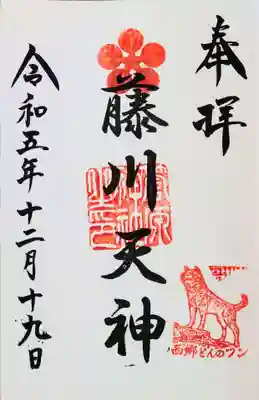 奉拝
藤川天神
西郷どんのツン
令和五年十二月十九日